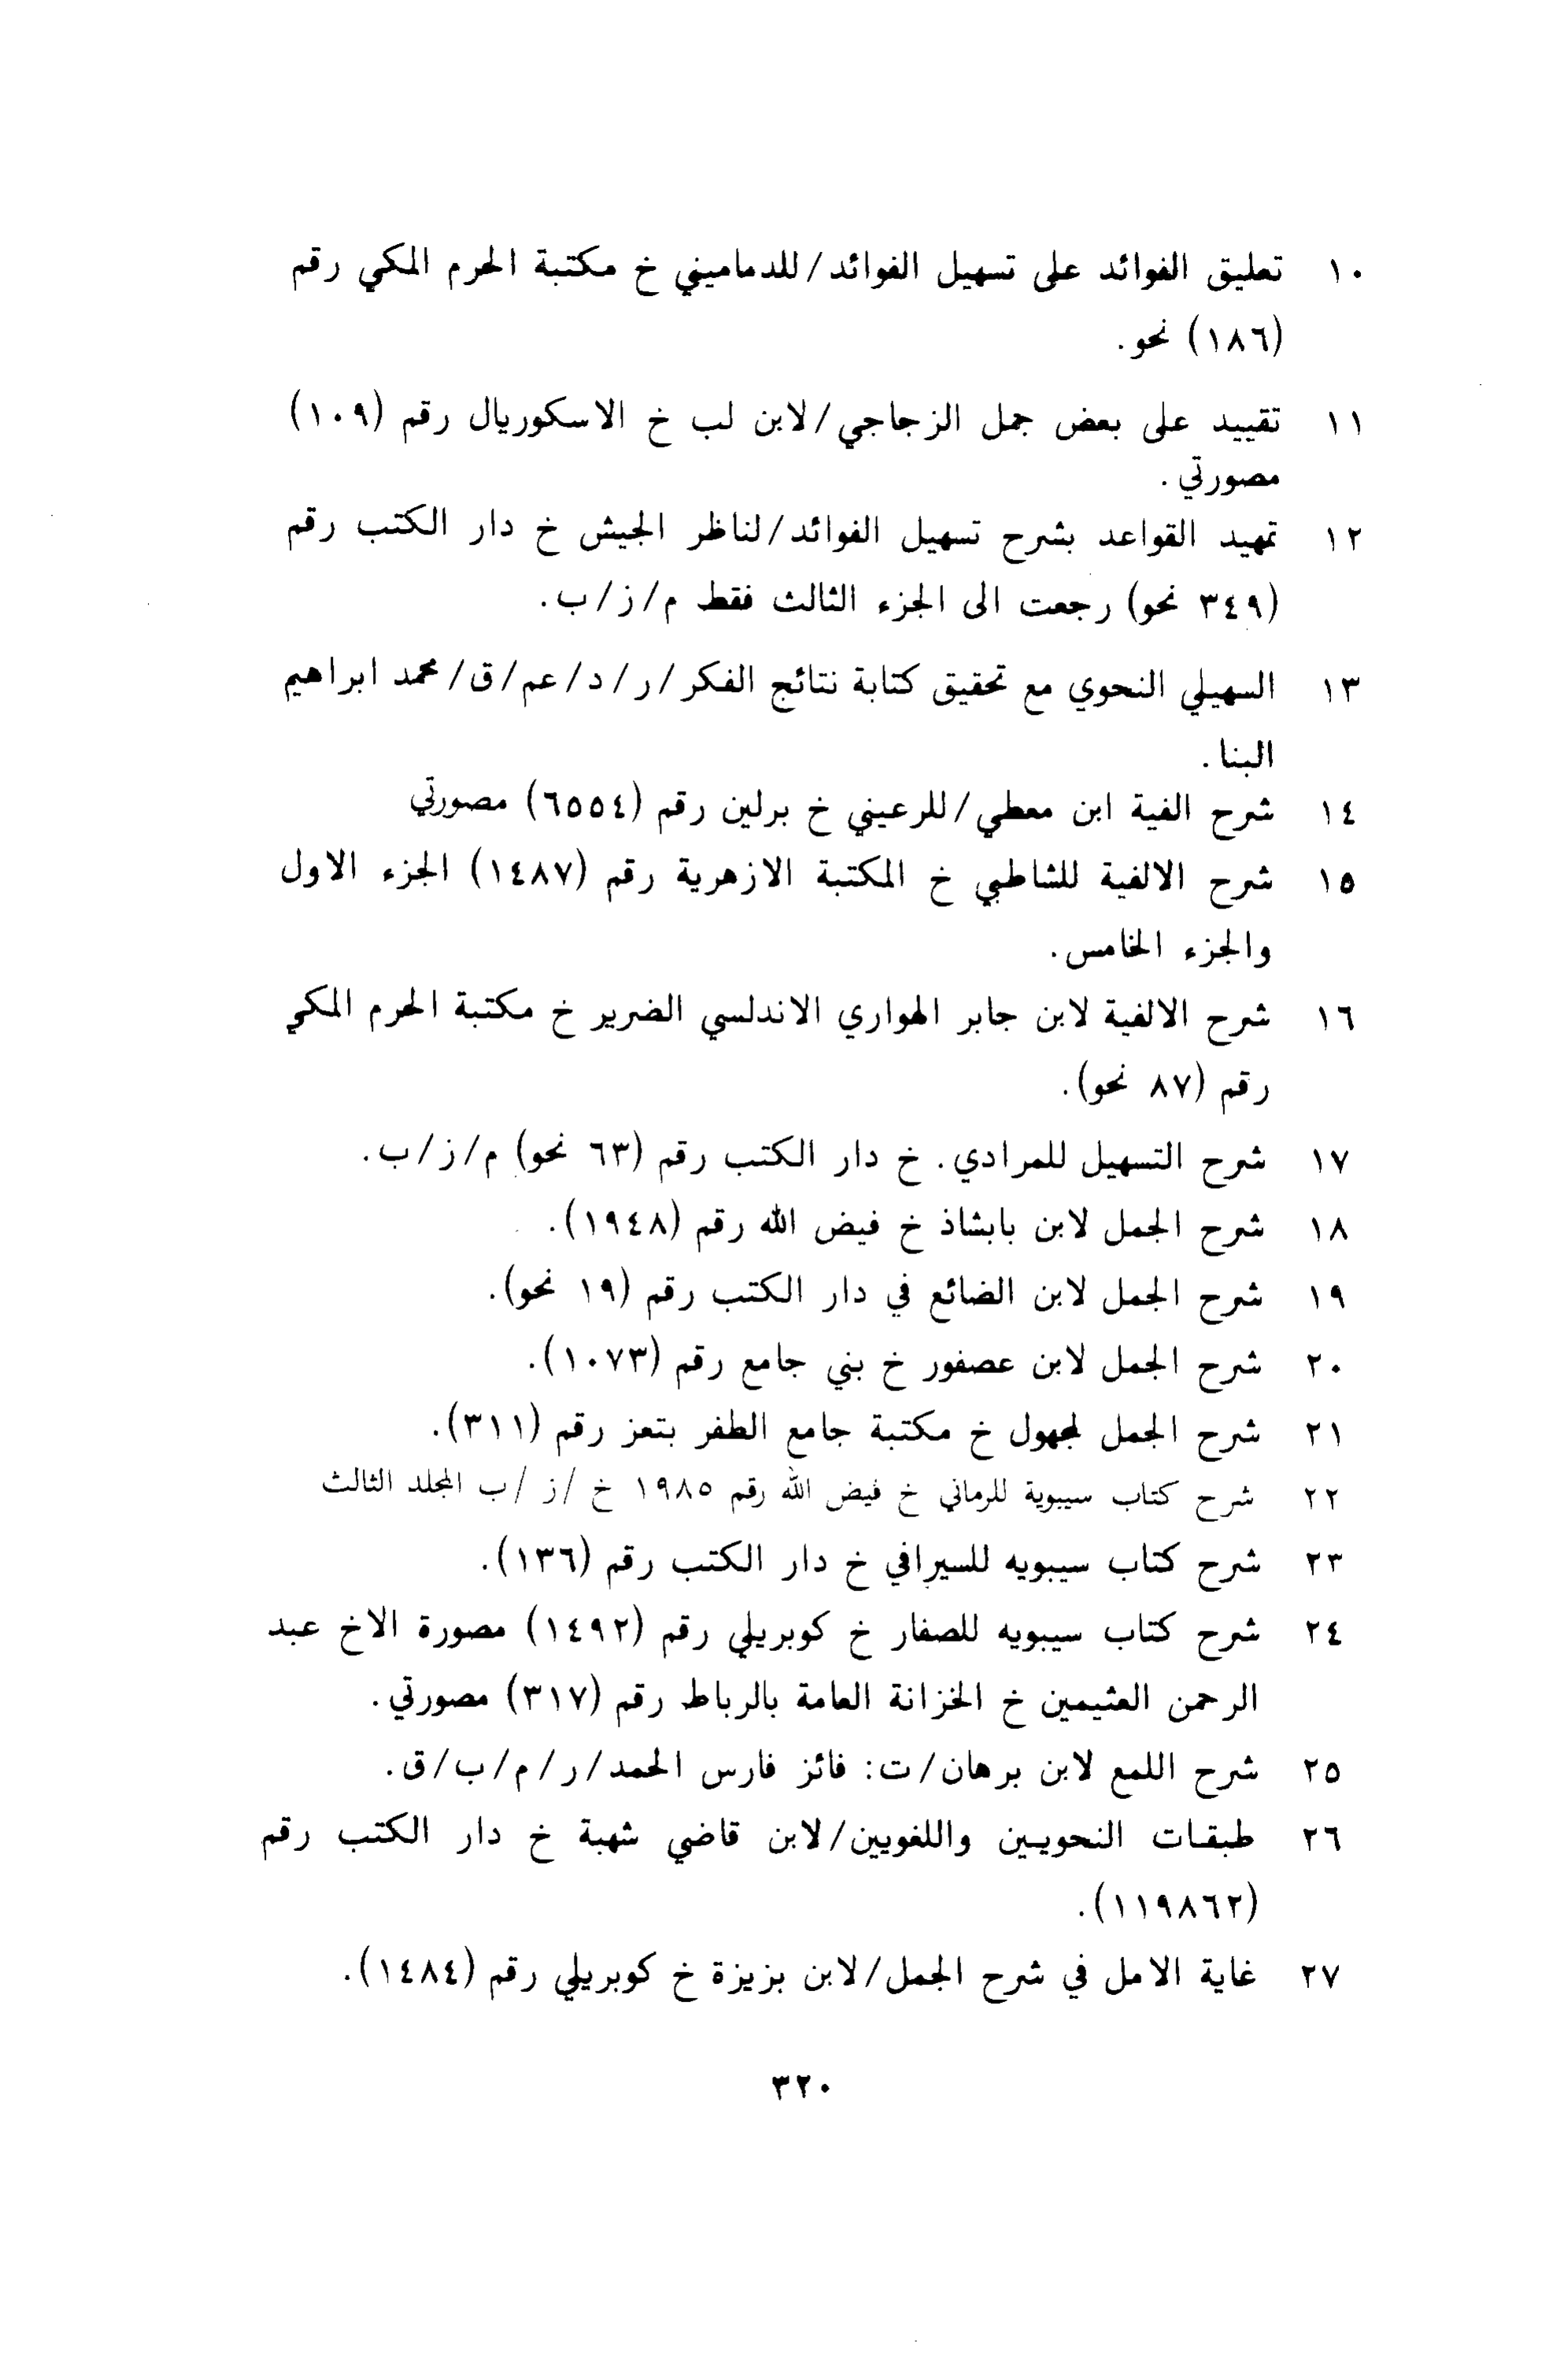 ١٠ تعليق الفوائد على تسهيل الفوائد/للدماميني خ مكتبة الحرم المكي رقم
(١٨٦) نحو.
١١ تقييد على بعض جمل الزجاجي/لابن لب خ الاسكوريال رقم (١٠٩)
مصورتي.
١٢ تمهيد القواعد بشرح تسهيل الفوائد/لناظر الجيش خ دار الكتب رقم
(٣٤٩ نحو) رجعت الى الجزء الثالث فقط م/ز/ب.
١٣ السهيلي النحوي مع تحقيق كتابة نتائج الفكر/ر/د/عم/ق/محمد ابراهيم
البنا.
١٤ شرح الفية ابن معطي/للرعيني خ برلين رقم (٦٥٥٤) مصورتي
١٥ شرح الالفية للشاطبي خ المكتبة الازهرية رقم (١٤٨٧) الجزء الاول
والجزء الخامس.
١٦ شرح الالفية لابن جابر الهواري الاندلسي الضرير خ مكتبة الحرم المكي
رقم (٨٧ نحو).
١٧ شرح التسهيل للمرادي. خ دار الكتب رقم (٦٣ نحو) م/ز/ب.
١٨ شرح الجمل لابن بابشاذ خ فيض الله رقم (١٩٤٨).
١٩ شرح الجمل لابن الضائع في دار الكتب رقم (١٩ نحو).
٢٠ شرح الجمل لابن عصفور خ بني جامع رقم (١٠٧٣).
٢١ شرح الجمل لمجهول خ مكتبة جامع الطفر بتعز رقم (٣١١).
٢٢ شرح كتاب سيبوية للرماني خ فيض الله رقم ١٩٨٥ خ /ز /ب المجلد الثالث
٢٣ شرح كتاب سيبويه للسيرافي خ دار الكتب رقم (١٣٦).
٢٤ شرح كتاب سيبويه للصفار خ كوبريلي رقم (١٤٩٢) مصورة الاخ عبد
الرحمن العثيمين خ الخزانة العامة بالرباط رقم (٣١٧) مصورتي.
٢٥ شرح اللمع لابن برهان/ت: فائز فارس الحمد/ر/م/ب/ق.
٢٦ طبقات النحويين واللغويين/لابن قاضي شهبة خ دار الكتب رقم
(١١٩٨٦٢).
٢٧ غاية الامل في شرح الجمل/لابن بزيزة خ كوبريلي رقم (١٤٨٤).
٣٢٠